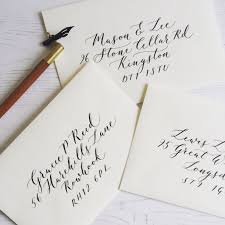 Mason & Lee
26 Stone Cellar Rd
Kingston
DT1 1STU
Grace P Reed
56 Harehills Lane
Rowhook
RH12 6PL
Lewis L
25 Great W
Longsd
ST9 1G